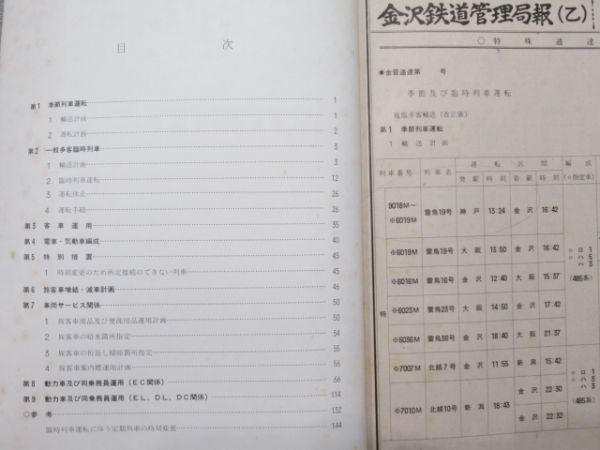 目 次
第1 季節列車運転 1
1 輸送計画 1
2 運転計画 2
第2 一般多客臨時列車 3
1 輸送計画 3
2 臨時列車運転 12
3 運転休止 26
4 運転手続 26
第3 客車運用 35
第4 電車・気動車編成 40
第5 特別措置 45
1 時刻変更のため所定接続のできない列車 45
第6 旅客車増結・減車計画 46
第7 車両サービス関係 50
1 旅客車備品及び便洗用品運用計画 50
2 旅客車の給水箇所指定 54
3 旅客車の折返し掃除箇所指定 55
4 旅客車案内標運用計画 60
第8 動力車及び同乗務員運用(EC関係) 66
第9 動力車及び同乗務員運用(EL、DL、DC関係) 114
○参考 132
臨時列車運転に伴う定期列車の時刻変更 144
金沢鉄道管理局報(乙)
○特殊通達
★金管通達第 号
季節及び臨時列車運転
第1 季節列車運転
1 輸送計画
列車番号 列車名 運転区間 編成
発駅 時刻 着駅 時刻 (○指定車)
9018M~※6019M 雷鳥19号 神戸 13:24 金沢 16:42
※6019M 雷鳥19号 大阪 13:50 金沢 16:42
※6016M 雷鳥16号 金沢 12:40 大阪 15:37 (485系)
特 ※6023M 雷鳥23号 大阪 14:50 金沢 17:42
※6036M 雷鳥36号 金沢 18:40 大阪 21:37
※7007M 北越7号 金沢 11:55 新潟 15:42
※7010M 北越10号 新潟 18:43 金沢 22:30 (485系)
金沢 22:32